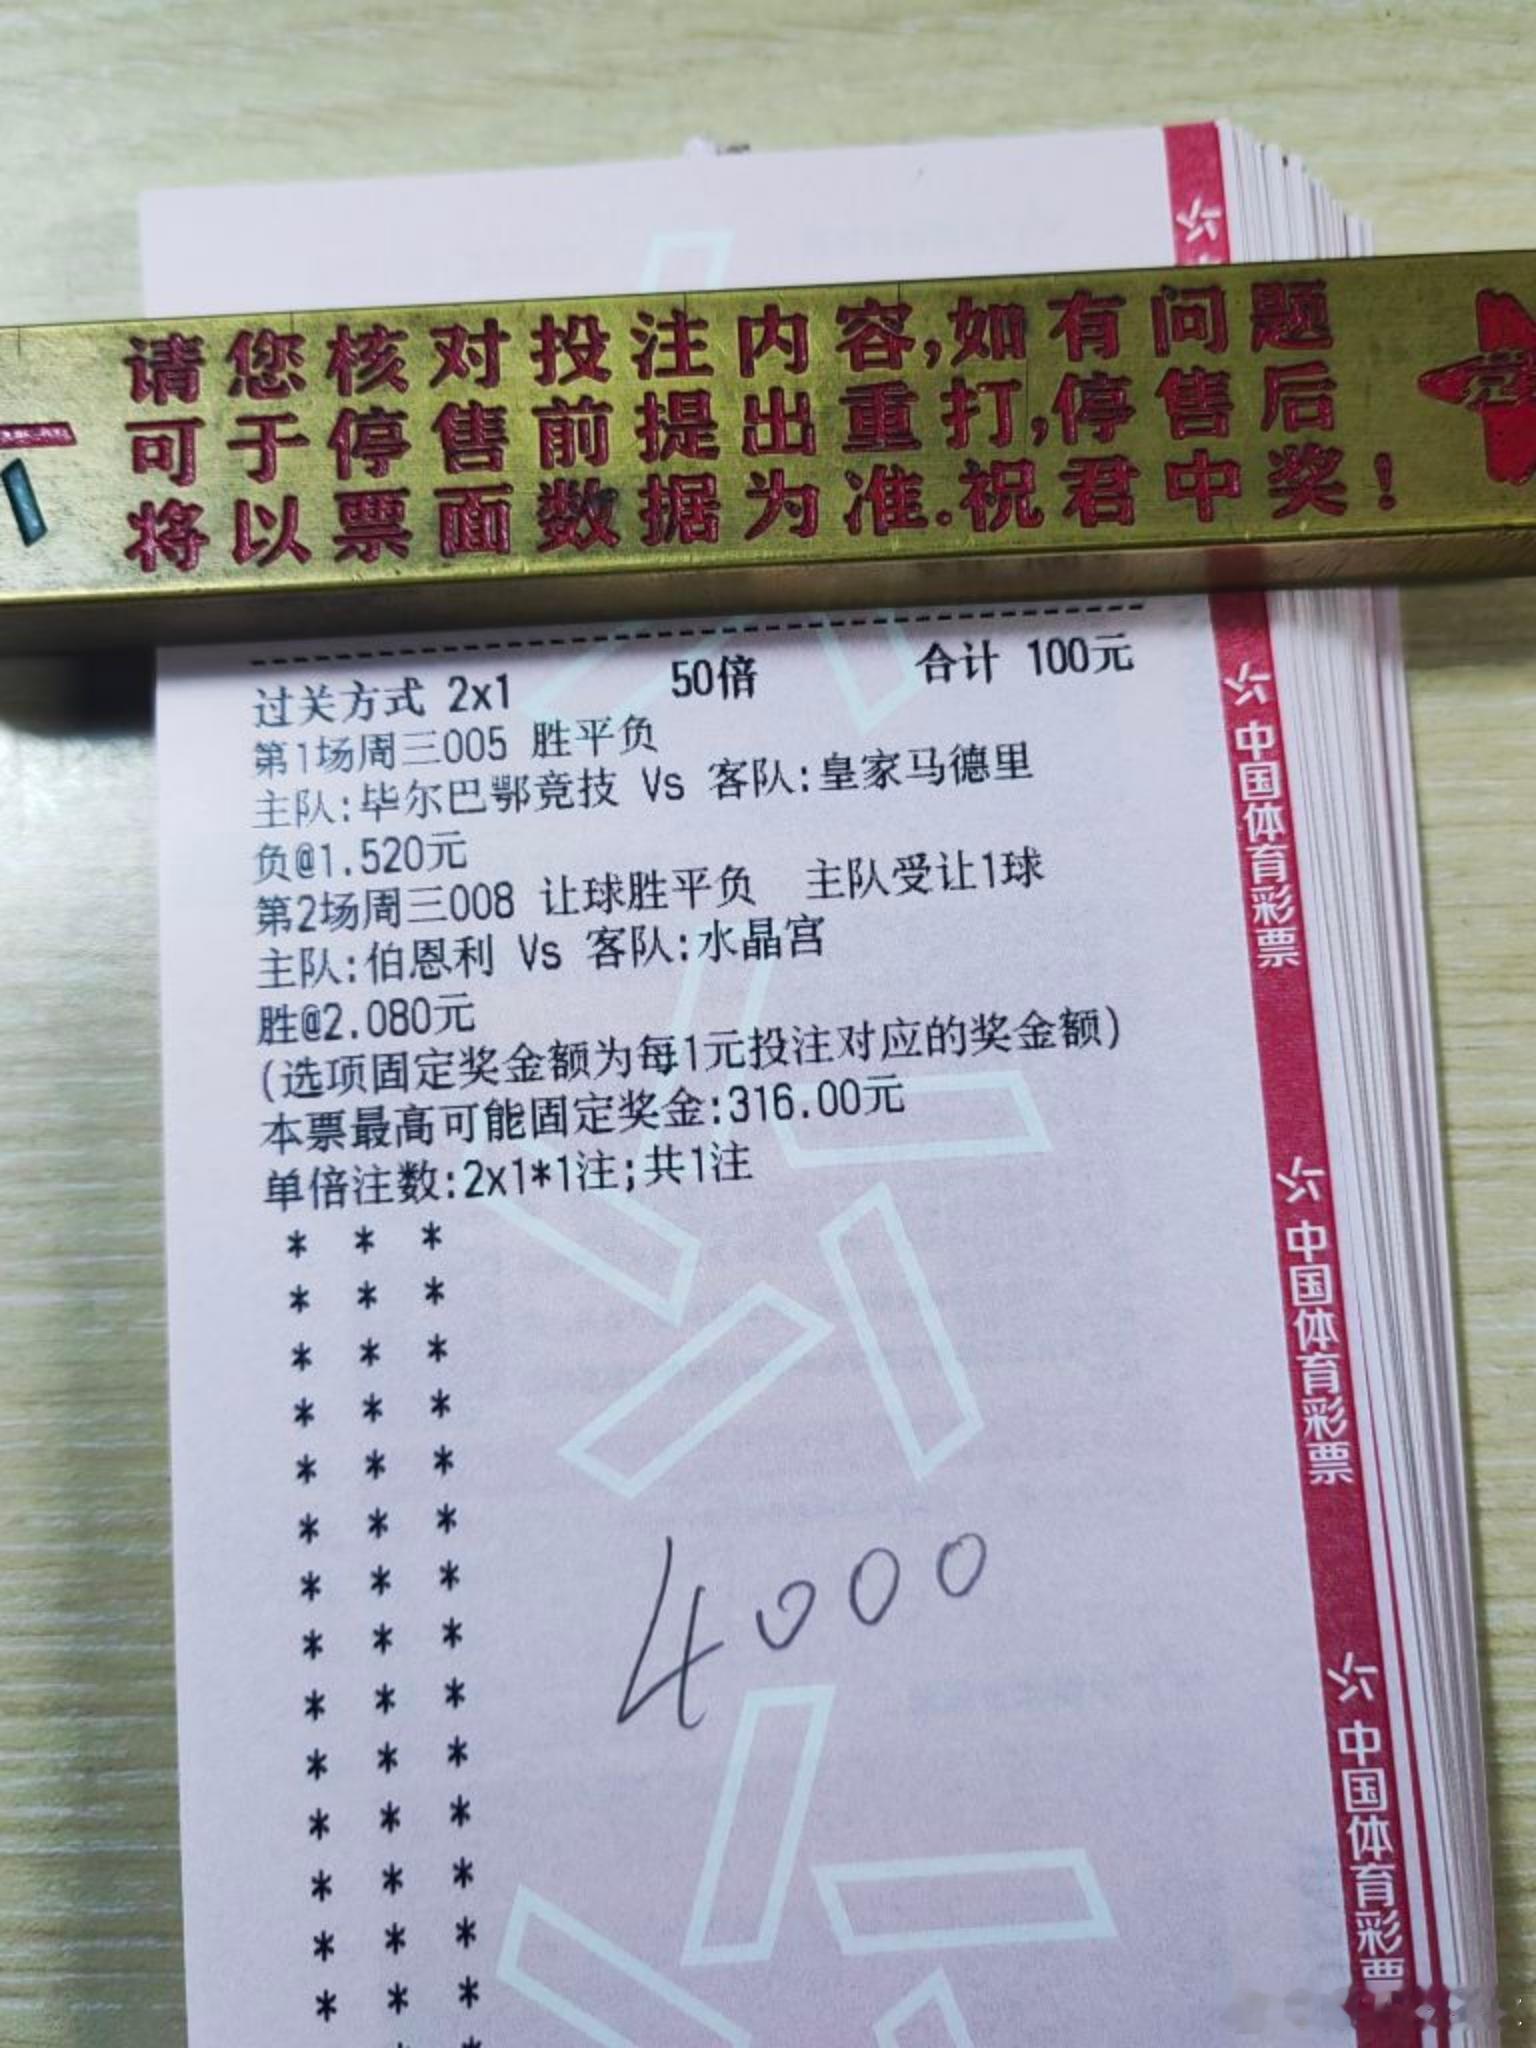 请您核对投注内容,如有问题
可于停售前提出重打,停售后
将以票面数据为准.祝君中奖!
过关方式 2x1 50倍 合计 100元
第1场周三005 胜平负
主队:毕尔巴鄂竞技 Vs 客队:皇家马德里
负@1.520元
第2场周三008 让球胜平负 主队受让1球
主队:伯恩利 Vs 客队:水晶宫
胜@2.080元
(选项固定奖金额为每1元投注对应的奖金额)
本票最高可能固定奖金:316.00元
单倍注数:2x1*1注;共1注
* * *
* * *
* * *
* * *
* * *
* * *
* * *
* * *
* * *
* * *
* * *
* * *
* * *
* * *
4000
中国体育彩票
中国体育彩票
中国体育彩票